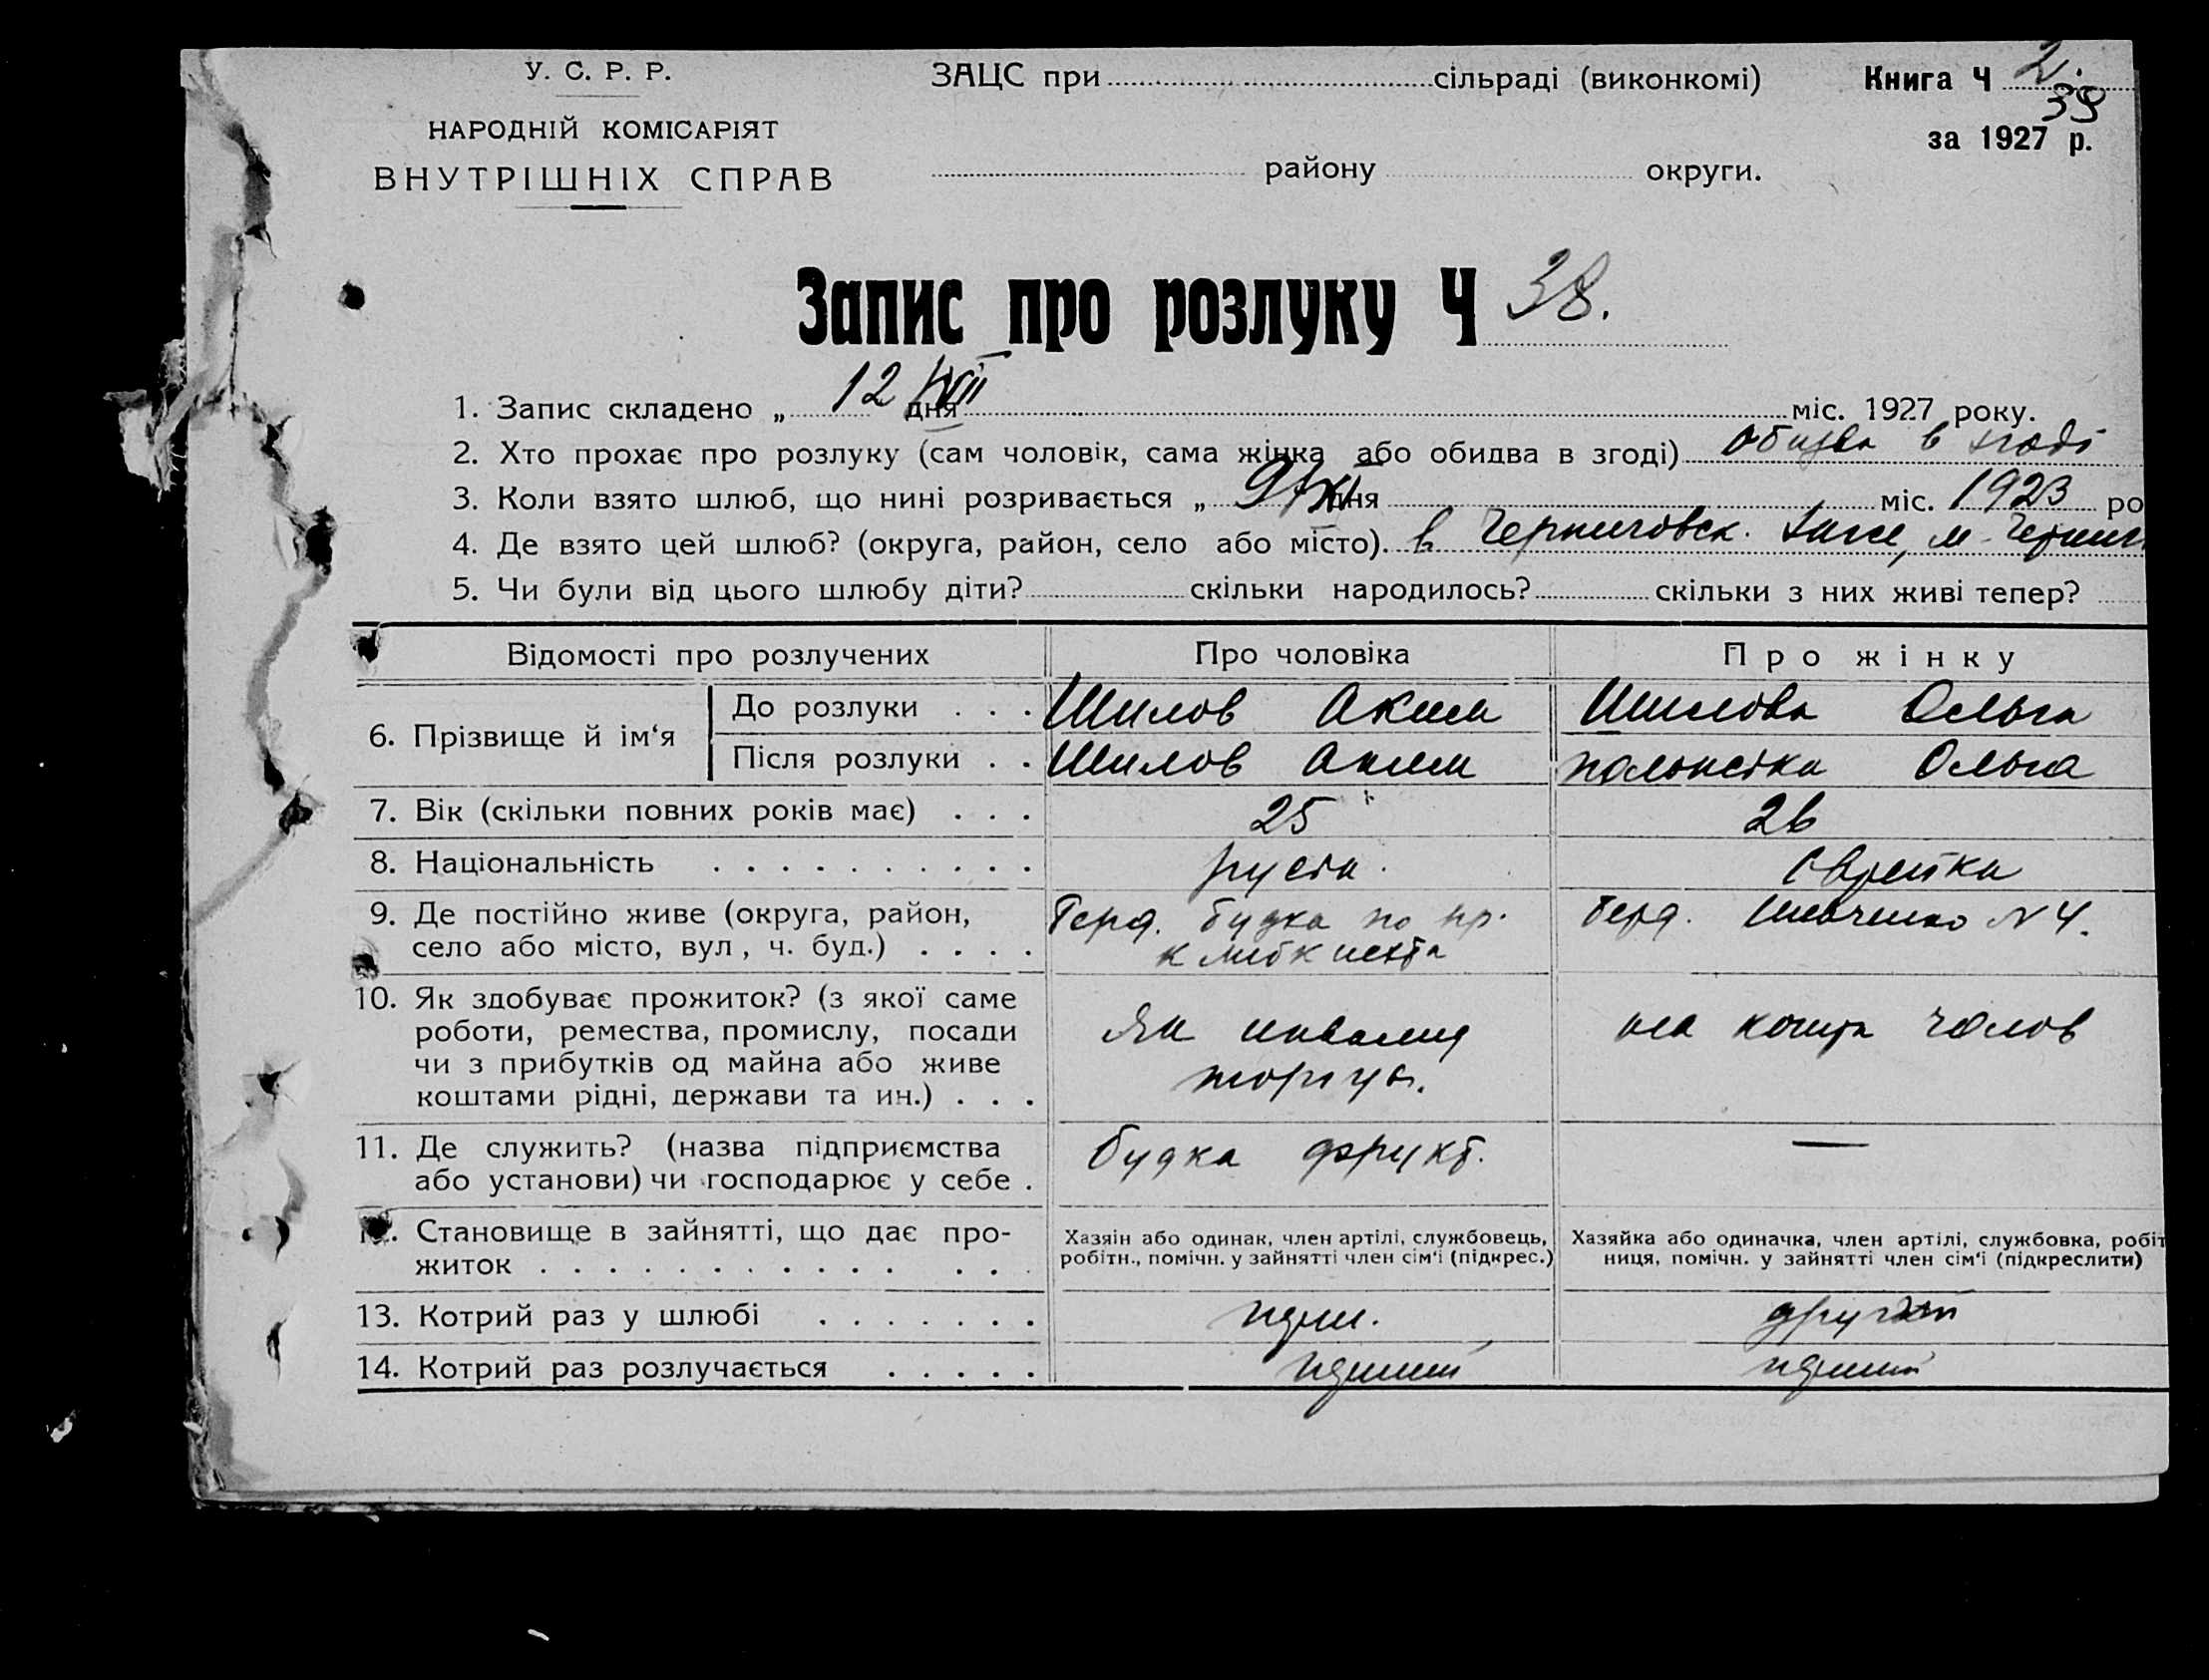 У. С. Р. Р.
НАРОДНІЙ КОМІСАРІЯТ
ВНУТРІШНІХ СПРАВ
ЗАЦС при сільраді (виконкомі)
району округи.
Книга Ч 2.
39
за 1927 р.
Запис про розлуку Ч 38.
1. Запис складено „ 12 дня міс. 1927 року.
2. Хто прохає про розлуку (сам чоловік, сама жінка або обидва в згоді) обидва в згоді
3. Коли взято шлюб, що нині розривається „ 9/XI дня міс. 1923 ро
4. Де взято цей шлюб? (округа, район, село або місто) в Черниговск. м. Черниг
5. Чи були від цього шлюбу діти? скільки народилось? скільки з них живі тепер?
Відомості про розлучених Про чоловіка Про жінку
6. Прізвище й ім‘я До розлуки . . . Шилов Аким Шилова Ольга
Після розлуки . . Шилов Аким Ольга
7. Вік (скільки повних років має) . . . 25 26
8. Національність . . . . . . . . . . єврейка
9. Де постійно живе (округа, район, Берд. будка по пр. Берд. Шевченко N 4.
село або місто, вул, ч. буд.) . . . .
10. Як здобуває прожиток? (з якої саме
роботи, ремества, промислу, посади Як инвалид на кошти чолов
чи з прибутків од майна або живе торгує.
коштами рідні, держави та ин.) . . .
11. Де служить? (назва підприємства будка фрукт. —
або установи) чи господарює у себе .
Становище в зайнятті, що дає про- Хазяін або одинак, член артілі, службовець, Хазяйка або одиначка, член артілі, службовка, робіт
житок . . . . . . . . . . . . . робітн., помічн. у зайнятті член сім‘і (підкрес.) ниця, помічн. у зайнятті член сім‘і (підкреслити)
13. Котрий раз у шлюбі . . . . . . . другий
14. Котрий раз розлучається . . . . .